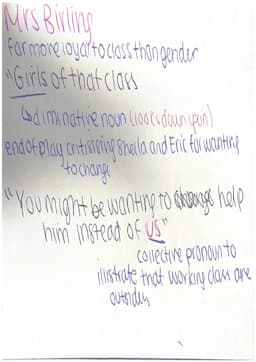 Mrs Birling
Far more loyal to class than gender
"Girls of that class
↳ diminative noun (looks down upon)
end of play critisising Sheila and Eric for wanting
to change
"You might be wanting to help
him instead of us"
collective pronoun to
illistrate that working class are
outsiders